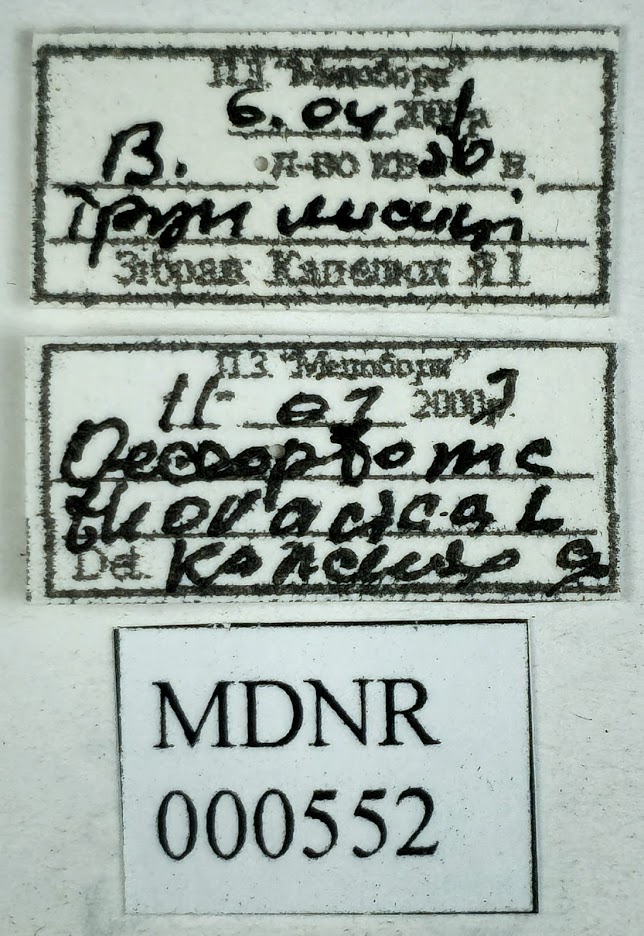 П.З "Медобори"
6.04 200 р
В. д-во кв. 26 в.
Труп лисиці
Зібрав: Капелюх Я.І.
П.З. "Медобори"
11 07 2000 р.
Oeceoptoma
thoracica L
Det. Капелюх Я
MDNR
000552